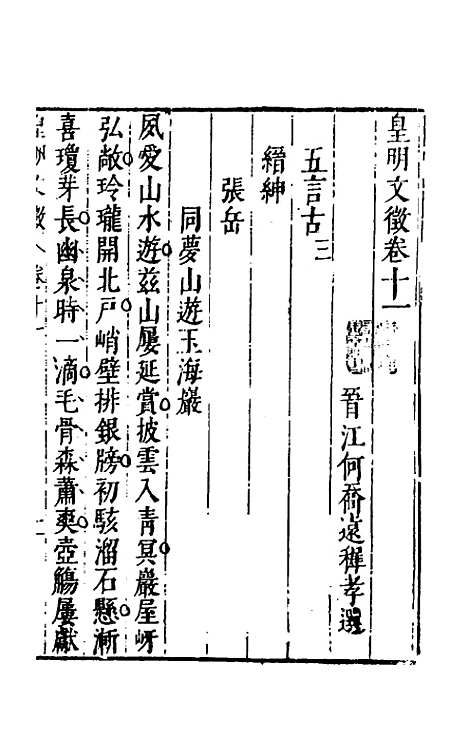 皇明文徵卷十一
晉江何喬遠穉孝選
五言古三
縉紳
張岳
同夢山遊玉海巖
夙愛山水遊茲山屢延賞披雲入青冥巖屋岈
弘敞玲瓏開北戸峭壁排銀牓初駭溜石懸漸
喜瓊芽長幽泉時一滴毛骨森蕭爽壺觴屢獻
皇明文徵卷十一
一